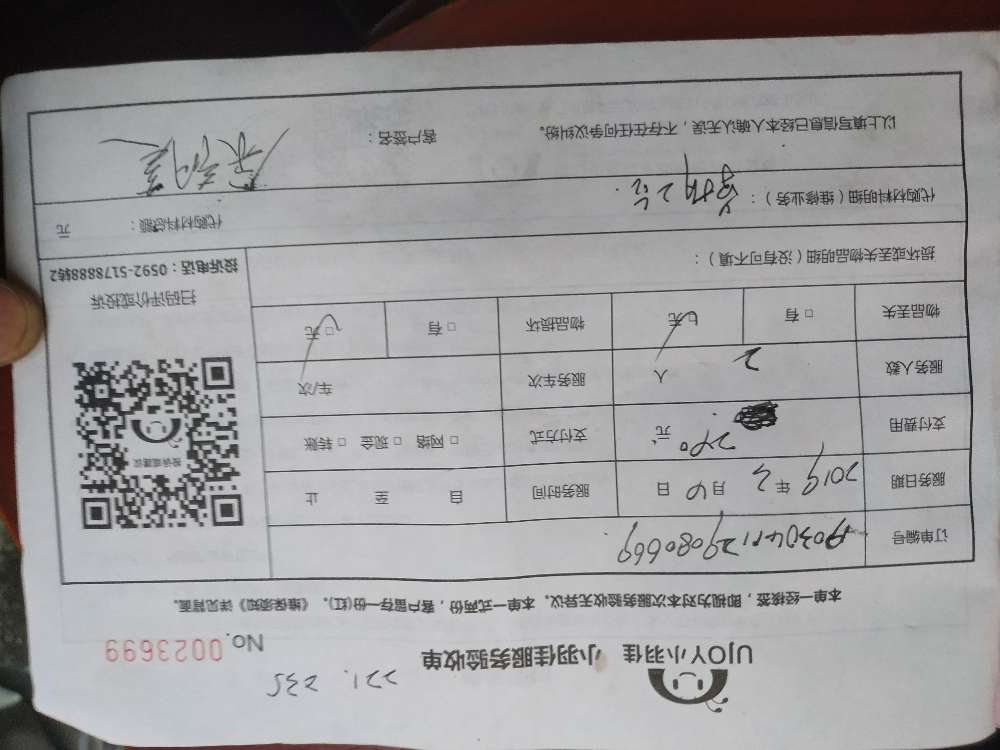 UJOY小羽佳 小羽佳服务验收单
221. 235
No. 0023699
本单一经核签，即视为对本次服务验收无异议。本单一式两份，客户留存一份(红)。《维保须知》详见背面。
订单编号
服务日期 2019 年 3 月 6 日 服务时间 自 至 止
支付费用 240 元 支付方式 □ 网络 □ 现金 □ 转账
服务人数 2 人 服务车次 车/次
物品丢失 □ 有 □ 无 物品损坏 □ 有 □ 无
投诉或建议
扫码评价或投诉
投诉电话：0592-5178888转2
损坏或丢失物品明细（没有可不填）：
代购材料明细（维修业务）：
代购材料总额： 元
以上填写信息已经本人确认无误，不存在任何争议纠纷。 客户签名：